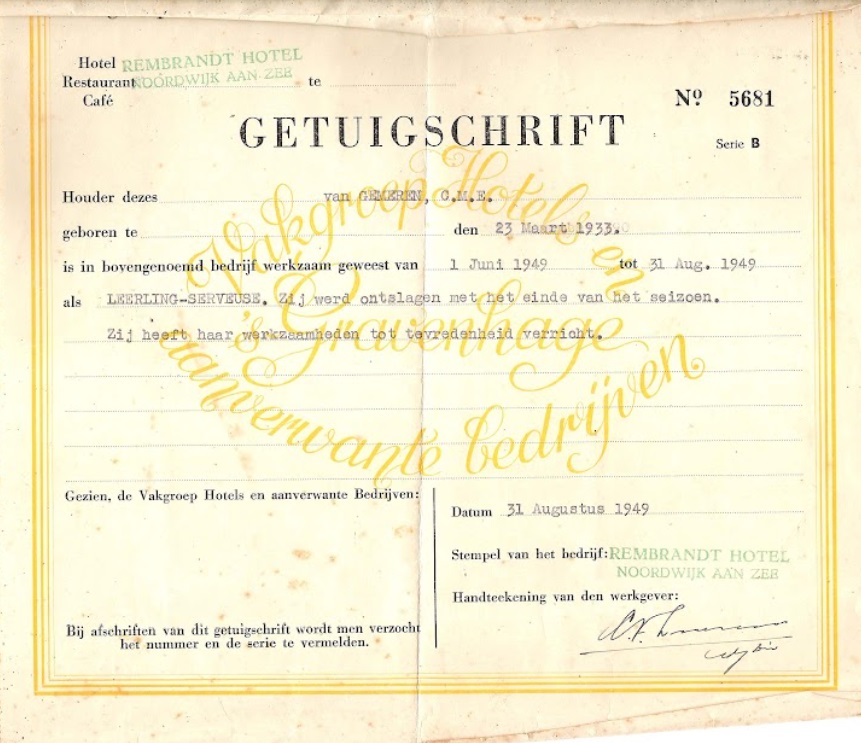 Hotel REMBRANDT HOTEL
Restaurant NOORDWIJK AAN ZEE te
Café
Nº 5681
GETUIGSCHRIFT
Serie B
Houder dezes van GEMEREN, C.M.E.
geboren te den 23 Maart 1933.
is in bovengenoemd bedrijf werkzaam geweest van 1 Juni 1949 tot 31 Aug. 1949
als LEERLING-SERVEUSE. Zij werd ontslagen met het einde van het seizoen.
Zij heeft haar werkzaamheden tot tevredenheid verricht.
Vakgroep Hotels en
's Gravenhage
aanverwante bedrijven
Gezien, de Vakgroep Hotels en aanverwante Bedrijven:
Bij afschriften van dit getuigschrift wordt men verzocht
het nummer en de serie te vermelden.
Datum 31 Augustus 1949
Stempel van het bedrijf: REMBRANDT HOTEL
NOORDWIJK AAN ZEE
Handteekening van den werkgever: